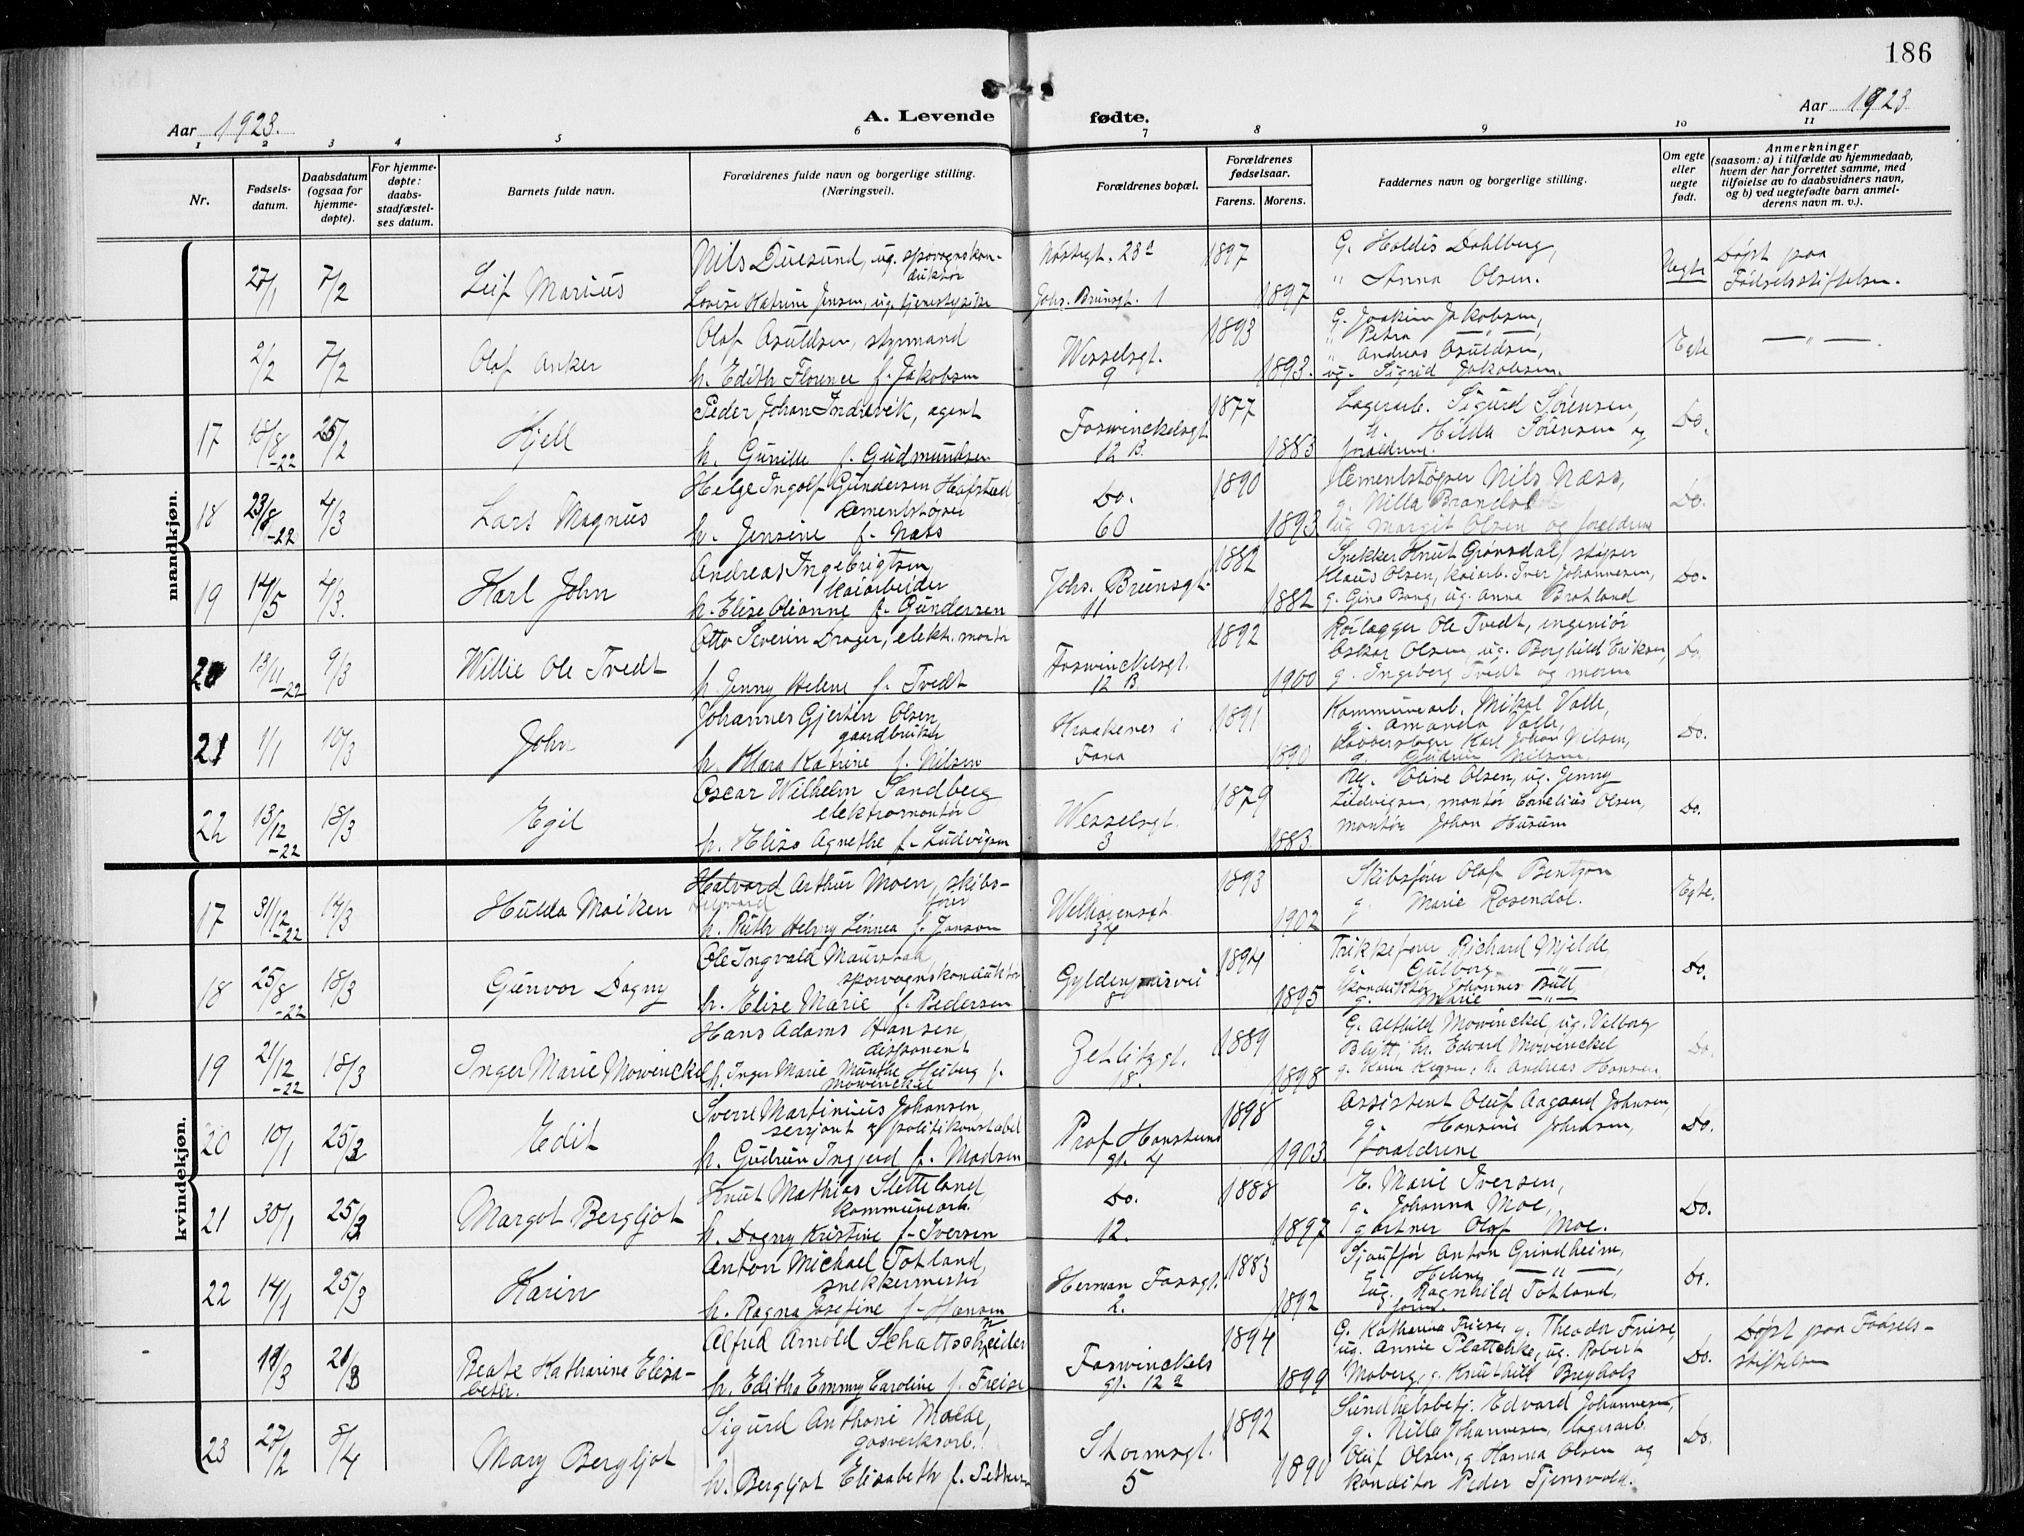 186
Aar 1923.
A. Levende fødte.
Aar 1923
1 2 3 4 5 6 7 8 9 10 11
Nr.
Fødsels-
datum.
Daabsdatum
(ogsaa for
hjemme-
døpte).
For hjemme-
døpte:
daabs-
stadfæstel-
ses datum.
Barnets fulde navn.
Forældrenes fulde navn og borgerlige stilling.
(Næringsvei).
Forældrenes bopæl.
Forældrenes
fødselsaar.
Farens. Morens.
Faddernes navn og borgerlige stilling.
Om egte
eller
uegte
født.
Anmerkninger
(saasom: a) i tilfælde av hjemmedaab,
hvem der har forrettet samme, med
tilføielse av to daabsvidners navn,
og b) ved uegtefødte barn anmel-
derens navn m. v.).
mandkjøn.
27/1 7/2 Leif Marius
Nils Duesund, ug. sporvognskon-
duktør
Lovise Katrine Jensen, ug. tjenestepike
Nøstegt. 28a
Johs. Brunsgt. 1
1897 1897
G. Haldis Dahlberg,
" Anna Olsen.
Uegte
Døpt paa
Fødselsstiftelsen.
2/2 7/2 Olaf Anker
Olaf Asuldsen, styrmand
h. Edith Florence f. Jakobsen
Wesselsgt.
9
1893 1893.
G. Joakim Jakobsen,
" Petra — " —,
" Andreas Asuldsen,
ug. Sigrid Jakobsen.
Egte
— " —
17 18/8-22 25/2 Kjell
Peder Johan Indrevik, agent
h. Gunille f. Gudmundsen
Foswinckelsgt.
12 B.
1877 1883
Lagerarb. Sigurd Sørensen,
h. Hilda Sørensen og
forældrene.
Do.
18 23/8-22 4/3 Lars Magnus
Helge Ingolf Gundersen Hafstad
cementstøper
h. Jensine f. Næss
Do.
60
1890 1893
Cementstøper Nils Næss,
g. Nilla
ug. Margit Olsen og forældrene
Do.
19 14/5 4/3. Karl John
Andreas Ingebrigtsen,
kaiarbeider
h. Elise Olianne f. Gundersen
Johs. Brunsgt.
11
1882 1882
Snekker Knut Grønsdal, støper
Klaus Olsen, kaiarb. Iver Johannesen,
g. Gina Bang, ug. Anna Bratland
Do.
20 13/11-22 9/3 Willie Ole Tvedt
Otto Severin Drager, elektr. montør
h. Jenny Helene f. Tvedt
Foswinckelsgt.
12 B
1892 1900
Rørlægger Ole Tvedt, ingeniør
Oskar Olsen, ug. Borghild Eriksen,
g. Ingeborg Tvedt og moren
Do.
21 1/1 10/3 John
Johannes Gjertin Olsen,
gaardbruker
h. Klara Katrine f. Nilsen
Kraakenes i
Fana
1891 1890
Kommunearb. Mikal Valle,
g. Amanda Valle,
Kobberslager Karl Johan Nilsen,
g. Gudrun Nilsen
Do.
22 13/12-22 18/3 Egil
Oscar Wilhelm Sandberg
elektromontør
h. Elise Agnethe f. Ludvigsen
Wesselsgt.
3
1879 1883.
Olive Olsen, ug. Jenny
Ludvigsen, montør Cornelius Olsen,
montør Johan Husum
Do.
kvindekjøn.
17 31/12-22 17/3 Hulda Maiken
Halvard Arthur Moen, skibs-
fører
h. Ruth Helmy Linnea f. Janson
Welhavensgt.
34
1893 1902
Skibsfører Olaf Bentzon
g. Marie Rosendal.
Egte.
18 25/8-22 18/3 Gunvor Dagny
Ole Ingvald Maurstad,
sporvognskonduktør
h. Elise Marie f. Pedersen
Gyldenprisvei
8
1894 1895
Trikkefører Richard Mjelde
g. Gulborg — " —
Konduktør Johannes Butt
g. Marie — " —
Do.
19 21/12-22 18/3 Inger Marie Mowinckel
Hans Adams Hansen,
disponent
h. Inger Marie Munthe Heiberg f.
Mowinckel
Zetlitzgt.
18.
1889 1898
G. Alfhild Mowinckel, ug. Valborg
Blytt, hr. Edvard Mowinckel
g. Karen h. Andreas Hansen.
Do.
20 10/1 25/3 Edit
Sverre Martinius Johansen,
sersjant & politikonstabel
h. Gudrun Ingjerd f. Madsen
Prof. Hansteens
gt. 4
1898 1903
Assistent Oluf Aagaard Johnsen,
g. Hansine Johnsen,
forældrene
Do.
21 30/1 25/3 Margot Bergljot
Knut Mathias Sletteland,
kommunearb.
h. Dagny Kristine f. Iversen
Do.
12.
1888 1897
E. Marie Iversen,
g. Johanna Moe,
gartner Olaf Moe.
Do.
22 14/1 25/3 Karin
Anton Michael Totland,
snekkermester
h. Ragna Josefine f. Hansen
Herman Fossgt.
2.
1883 1892
Sjauffør Anton Grindheim,
g. Helene — " —,
ug. Ragnhild Totland,
Do.
19/3 21/3 Beate Katharina Elisa-
beth.
Alfred Arnold Schattschneider
h. Editha Emmy Caroline f. Freise
Foswinckels
gt. 12 a
1894 1899
G. Katharina Friese, g. Theodor Friese,
ug. Annie Plattchke, ug. Robert
Moberg, g. Knuthild Breyholz
Do.
Døpt paa Fødsels-
stiftelsen
23 27/2 8/4 Mary Bergljot
Sigurd Anthoni Molde,
gasverksarb.
h. Bergljot Elisabeth f. Pettersen
Stormsgt.
5
1892 1890
Sundhetsbetj. Edvard Johannesen,
g. Nilla Johannesen, lagerarb.
Oluf Olsen, g. Hanna Olsen og
konditor Peder Tjensvold.
Do.